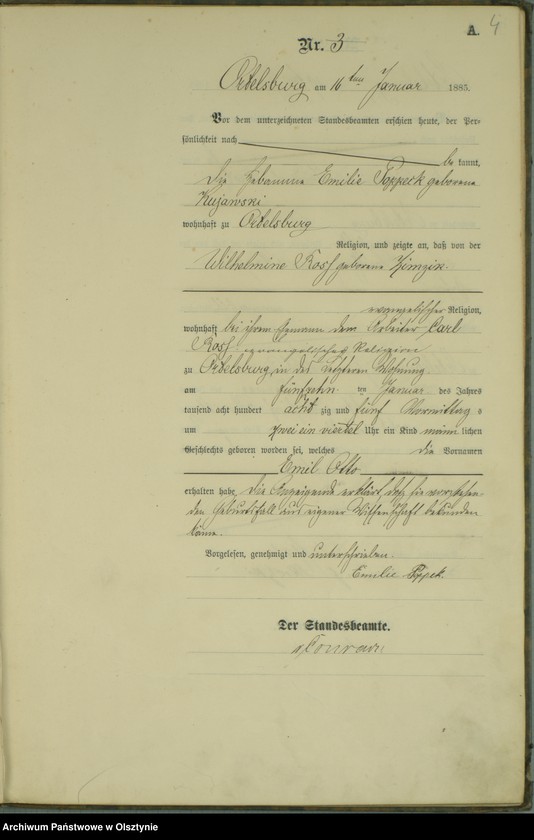 A. 4
Nr. 3
Ortelsburg am 16 ten Januar 1885.
Vor dem unterzeichneten Standesbeamten erschien heute, der Per-
sönlichkeit nach
be kannt,
die Hebamme Emilie Poppeck geborene
Kujawski
wohnhaft zu Ortelsburg
Religion, und zeigte an, daß von der
Wilhelmine Ross geborene
evangelischer Religion,
wohnhaft bei ihrem Ehemann dem Arbeiter Carl
Ross evangelischer Religion
zu Ortelsburg, in des Letzteren Wohnung
am fünfzehn ten Januar des Jahres
tausend acht hundert acht zig und fünf Vormittag s
um zwei ein viertel Uhr ein Kind männ lichen
Geschlechts geboren worden sei, welches die Vornamen
Emil Otto
erhalten habe, die Anzeigende erklärt, daß sie vorstehen-
den Geburtsfall aus eigener Wissenschaft bekunden
könne.
Vorgelesen, genehmigt und unterschrieben.
Emilie
Der Standesbeamte.
Archiwum Państwowe w Olsztynie